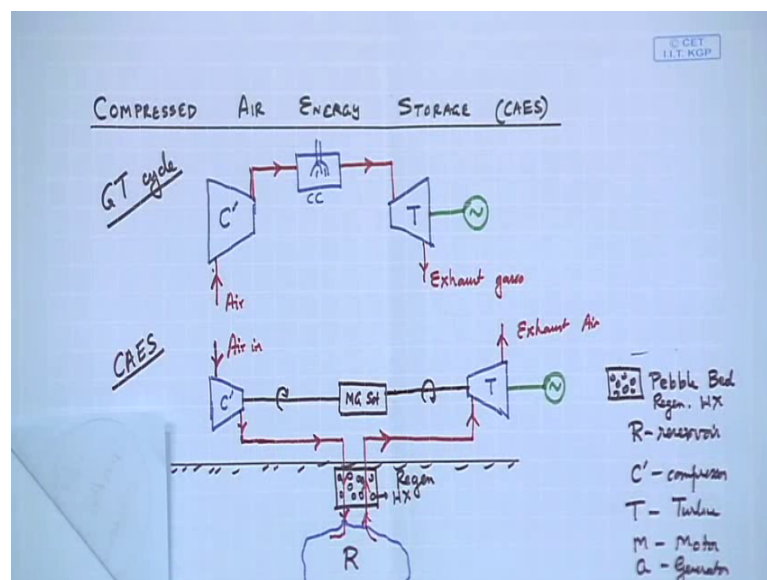 © CET
I.I.T. KGP
COMPRESSED AIR ENERGY STORAGE (CAES)
GT cycle
C'
CC
T
~
Air
Exhaust gases
CAES
Air in
Exhaust Air
C'
MG Set
T
~
Pebble Bed
Regen. HX
R - reservoir
Regen
HX
C' - compressor
T - Turbine
R
M - Motor
G - Generator